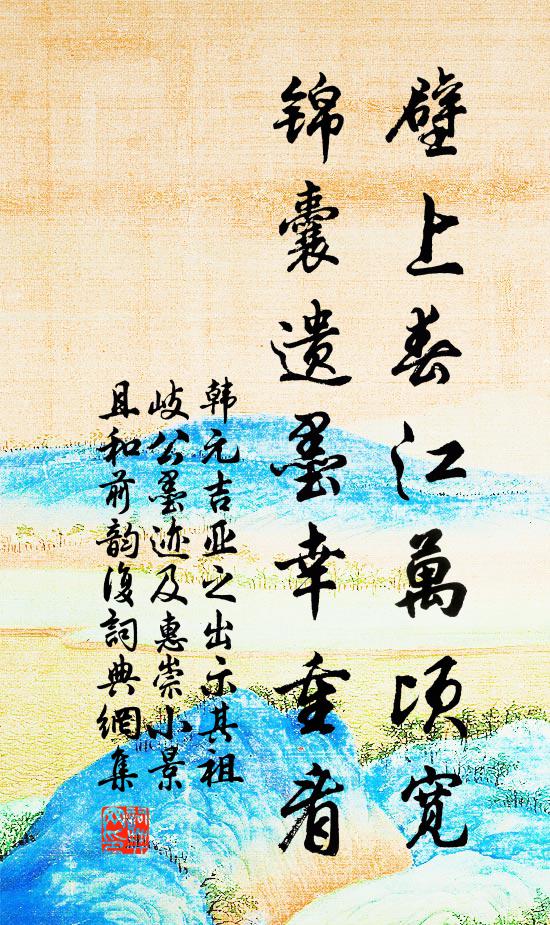 壁上春江萬頃寬
锦囊遗墨幸重看
韩元吉亚之出示其祖
岐公墨迹及惠崇小景
且和前韵復詞典網集